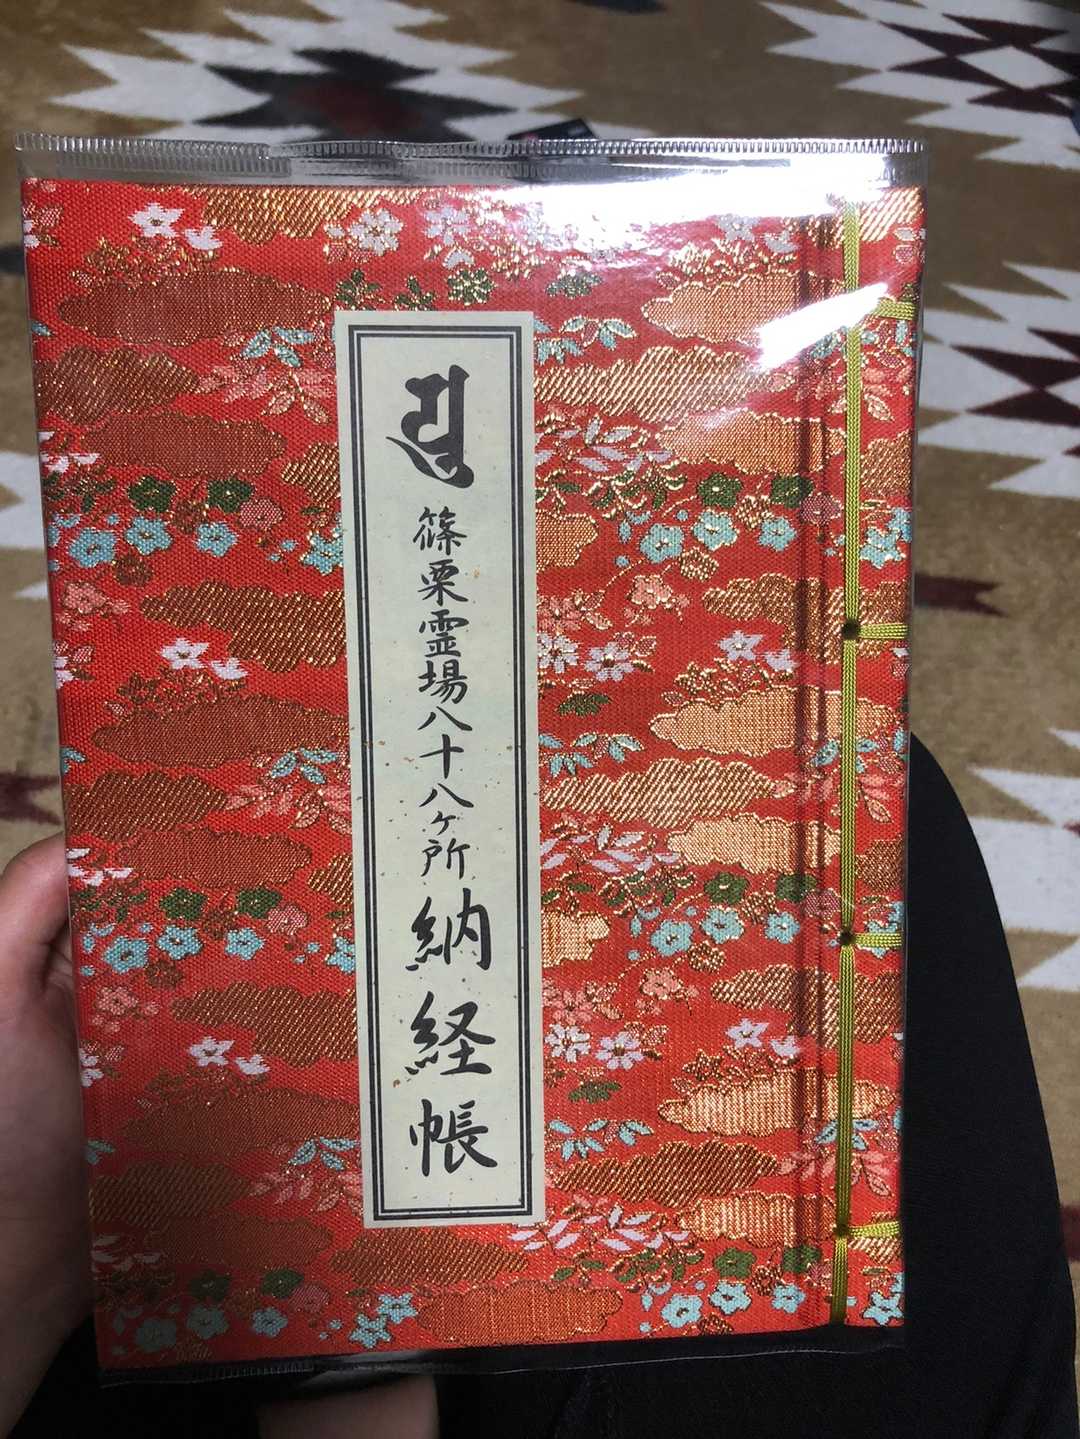 篠栗霊場八十八ヶ所納経帳